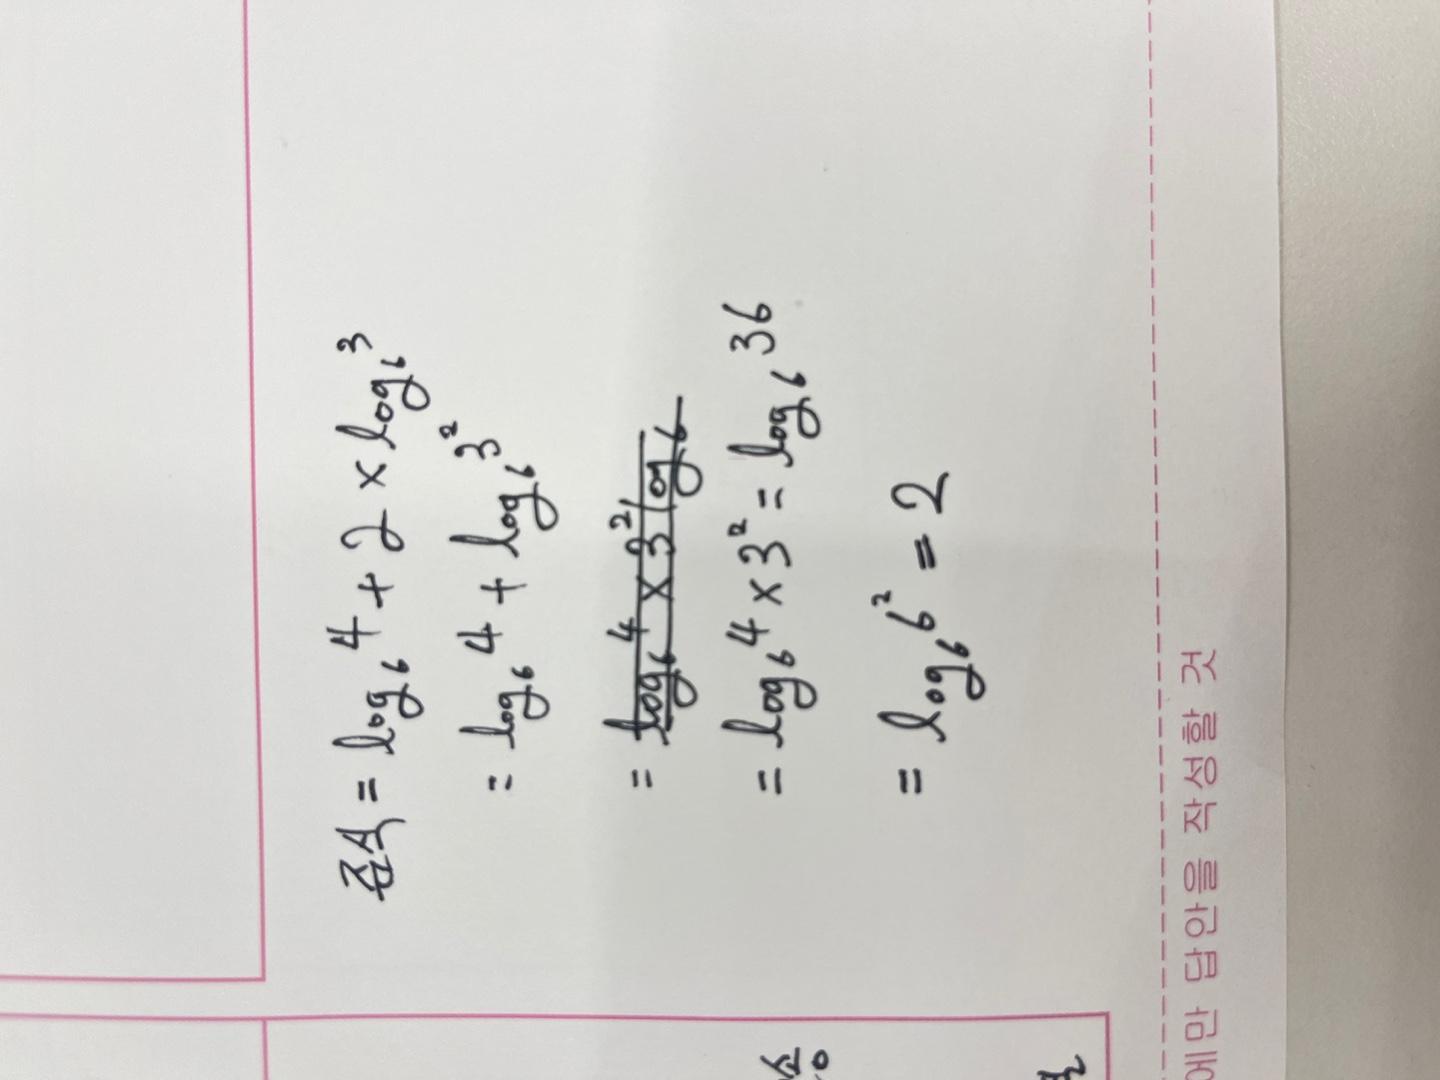 준식 = log₆4 + 2 × log₆3
= log₆4 + log₆3²
= log₆4 × 3² log₆
= log₆4 × 3² = log₆36
= log₆6² = 2
에만 답안을 작성할 것